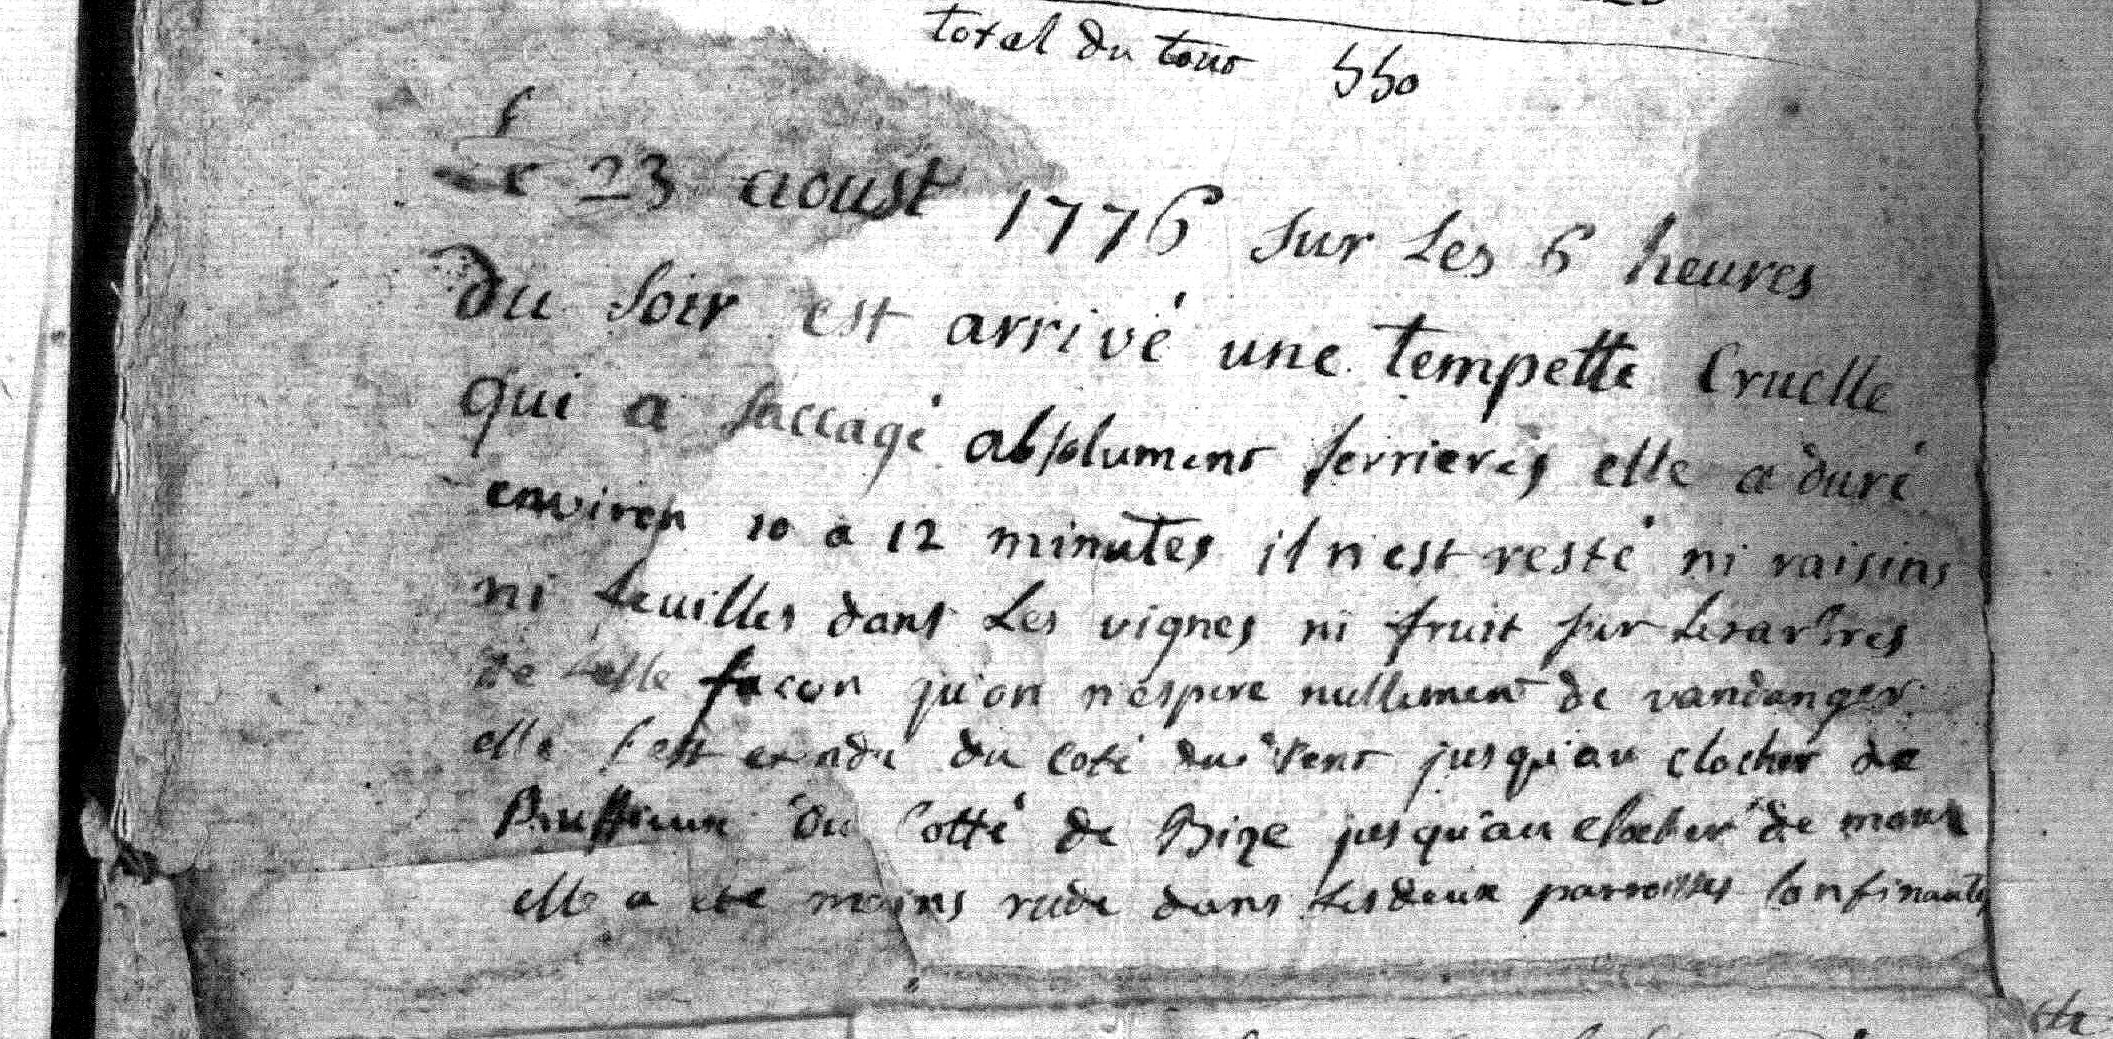 total du tout 550
Le 23 aoust 1776 sur Les 6 heures
du soir est arrivé une tempette Cruelle
qui a saccagé absolument ferrieres elle a duré
environ 10 a 12 minutes il n'est resté ni raisins
ni feuilles dans Les vignes ni fruit sur Les arbres
de telle facon qu'on n'espere nullement de vandanger
elle s'est etendu du coté du vent jusqu'au clocher de
Ruffieux du cotté de Bize jusqu'au clocher de
elle a ete moins rude dans Les deux parroisses confinantes